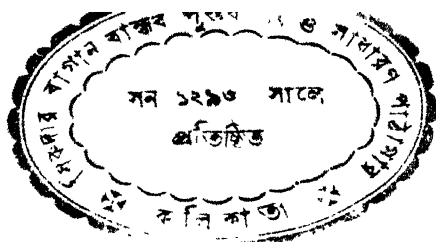 সিকদার বাগান বান্ধব পুস্তকালয় ও সাধারণ পাঠাগার
সন ১২৯৩ সালে
প্রতিষ্ঠিত
কলিকাতা